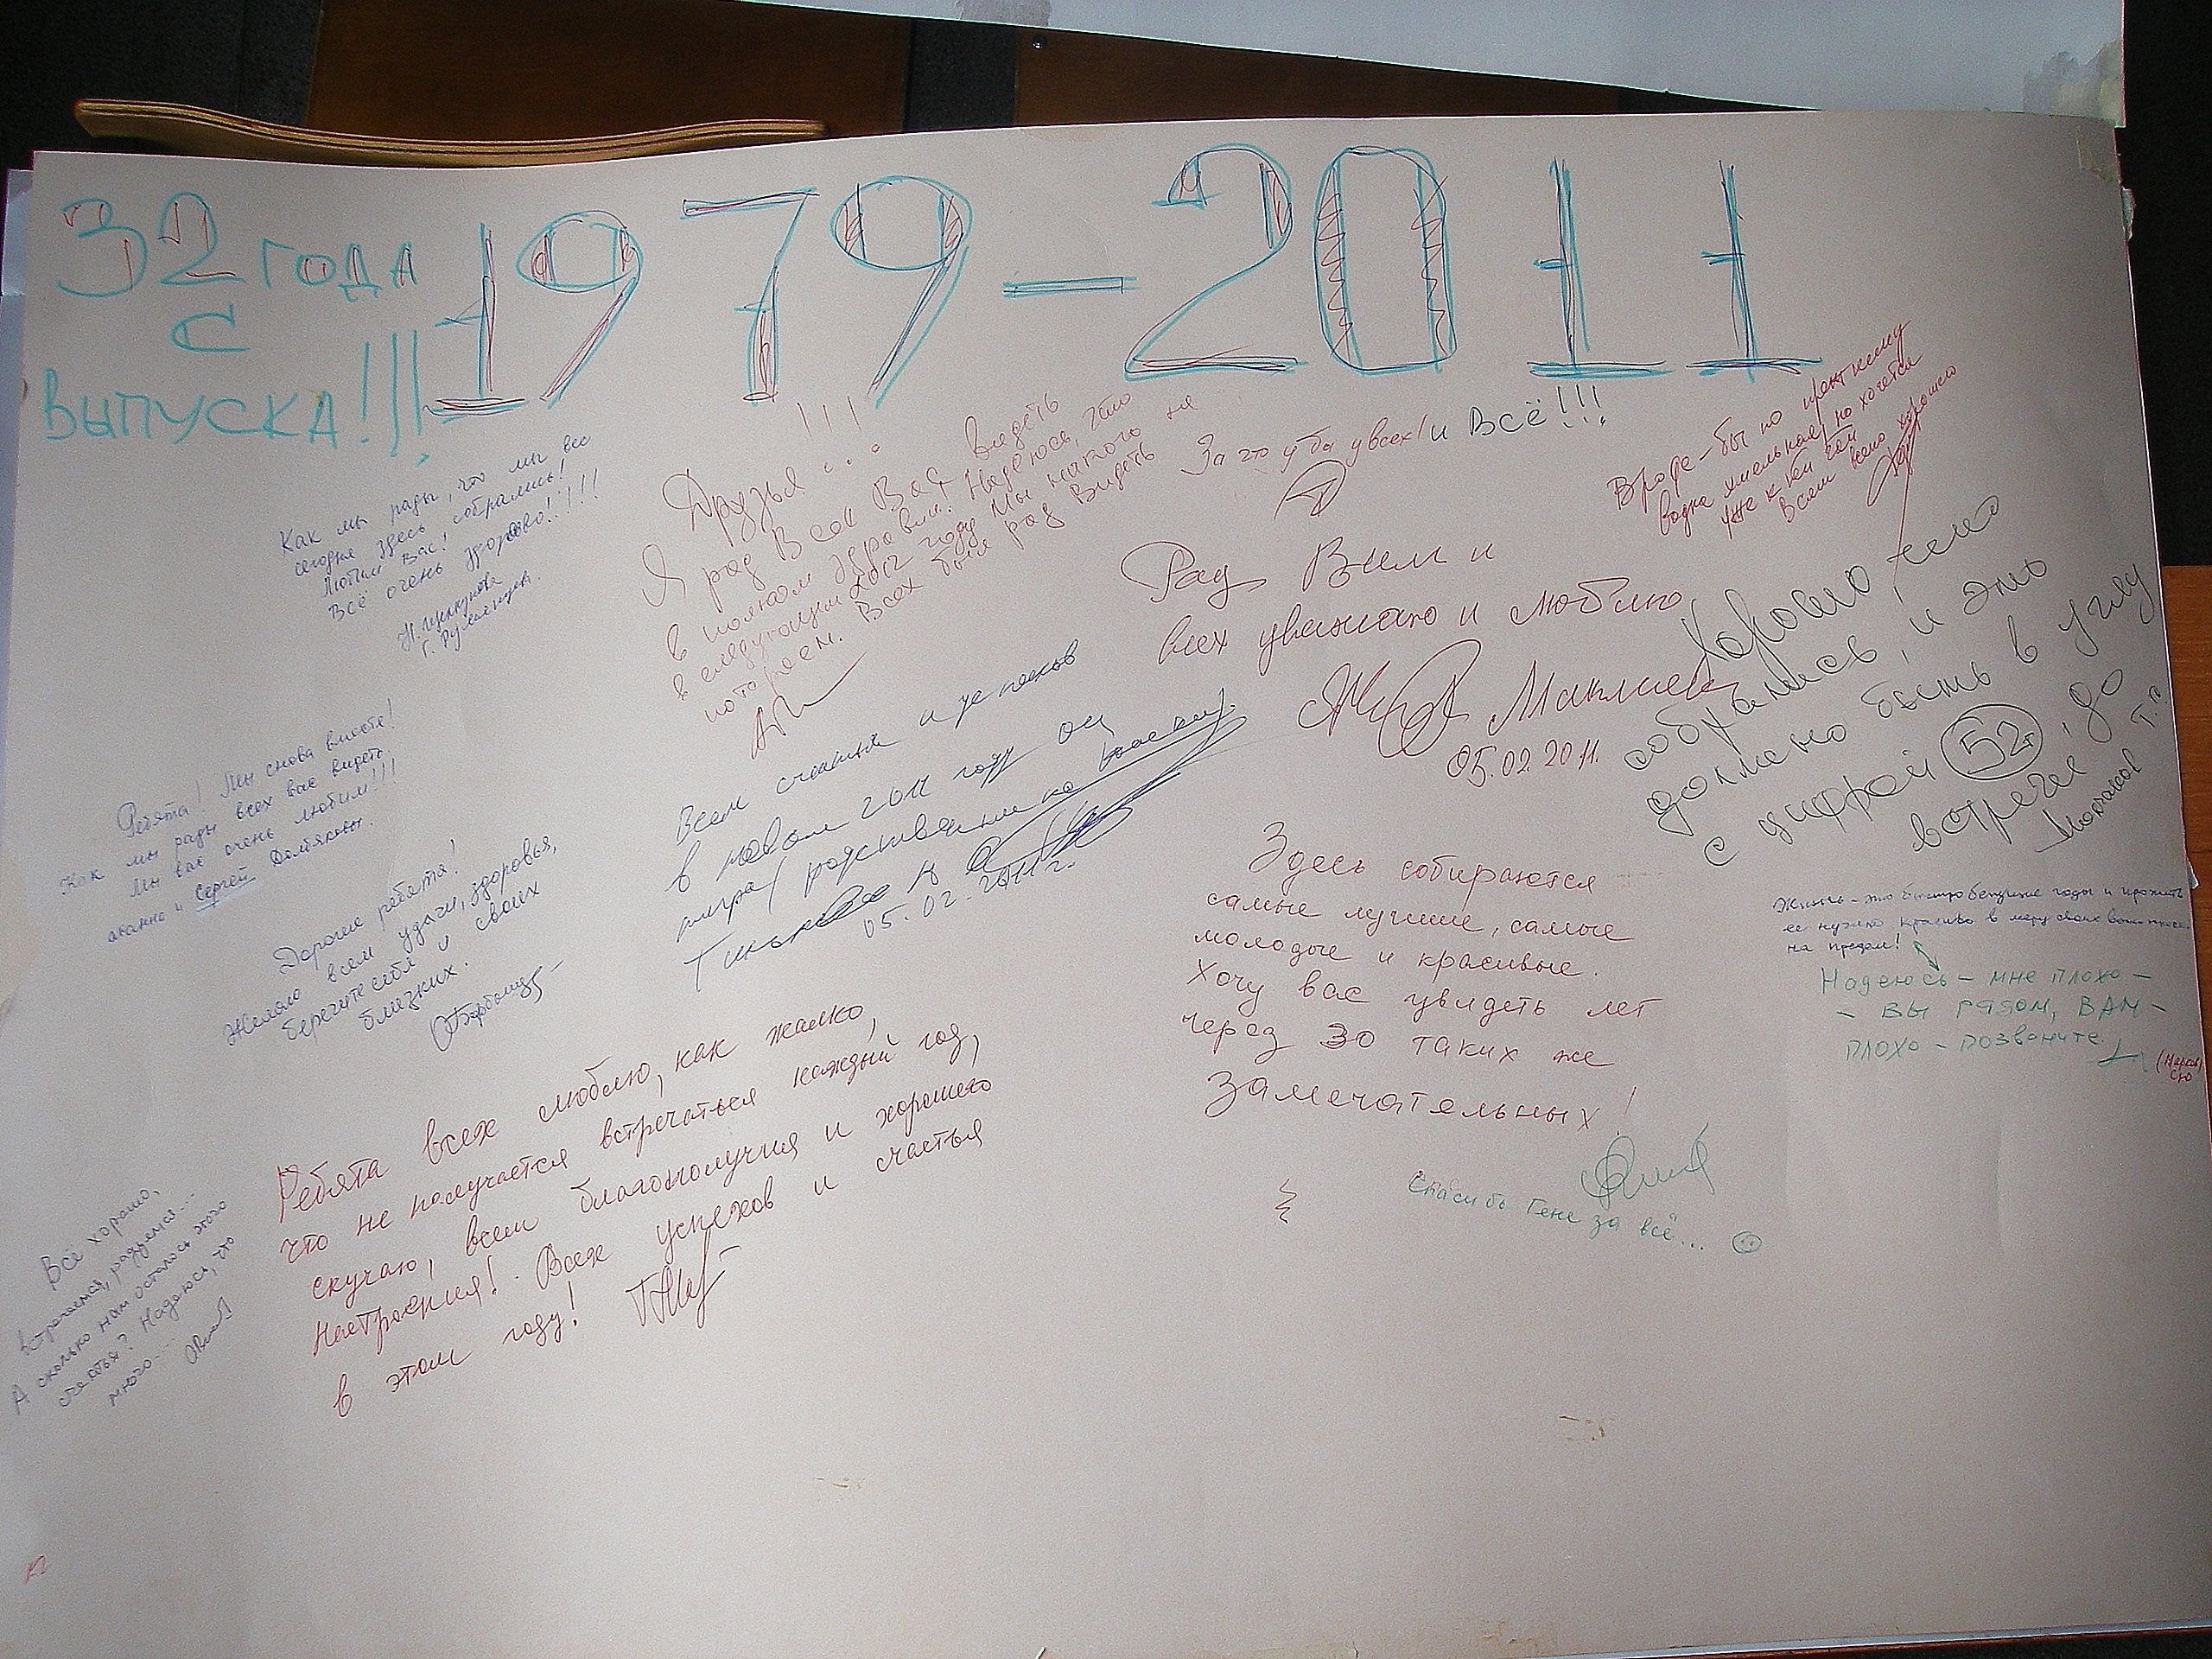 32 года
с
выпуска!!!
1979-2011
!!!
Как мы рады, что мы все
сегодня здесь собрались!
Любим Вас!
Всё очень здорово!!!!!
Друзья...
Я рад Всех Вас видеть
в полном здравии! Надеюсь, что
в следующем 2012 году мы никого не
потеряем. Всех был рад видеть
За это и Всё!!!
Вроде-бы по
водка но хочется
уже к
Всем всего хорошего
Рад Вам и
всех уважаю и люблю
05.02.2011.
Хорошо, что
собрались, и это
должно быть в углу
с цифрой 52г, до
встречи
Т.Г.
Ребята! Мы снова вместе!
Как мы рады всех вас видеть.
Мы вас очень любим!!!
и Сергей
Всем счастья и успехов
в новом 2011 году
05.02.2011г.
Дорогие ребята!
Желаю всем удачи, здоровья,
берегите себя и своих
близких.
Здесь собираются
самые лучшие, самые
молодые и красивые.
Хочу вас увидеть лет
через 30 таких же
замечательных!
Жизнь - это быстро бегущие годы и прожить
ее нужно красиво в меру своих
на
Надеюсь - мне плохо -
- вы рядом, вам -
плохо - позвоните
Ребята всех люблю, как жалко,
что не получается встречаться каждый год,
скучаю, всем благополучия и хорошего
настроения! Всех успехов и счастья
в этом году!
Спасибо Гене за всё...
Всё хорошо,
встречаемся, радуемся...
А сколько нам осталось этого
счастья? Надеюсь, что
много...